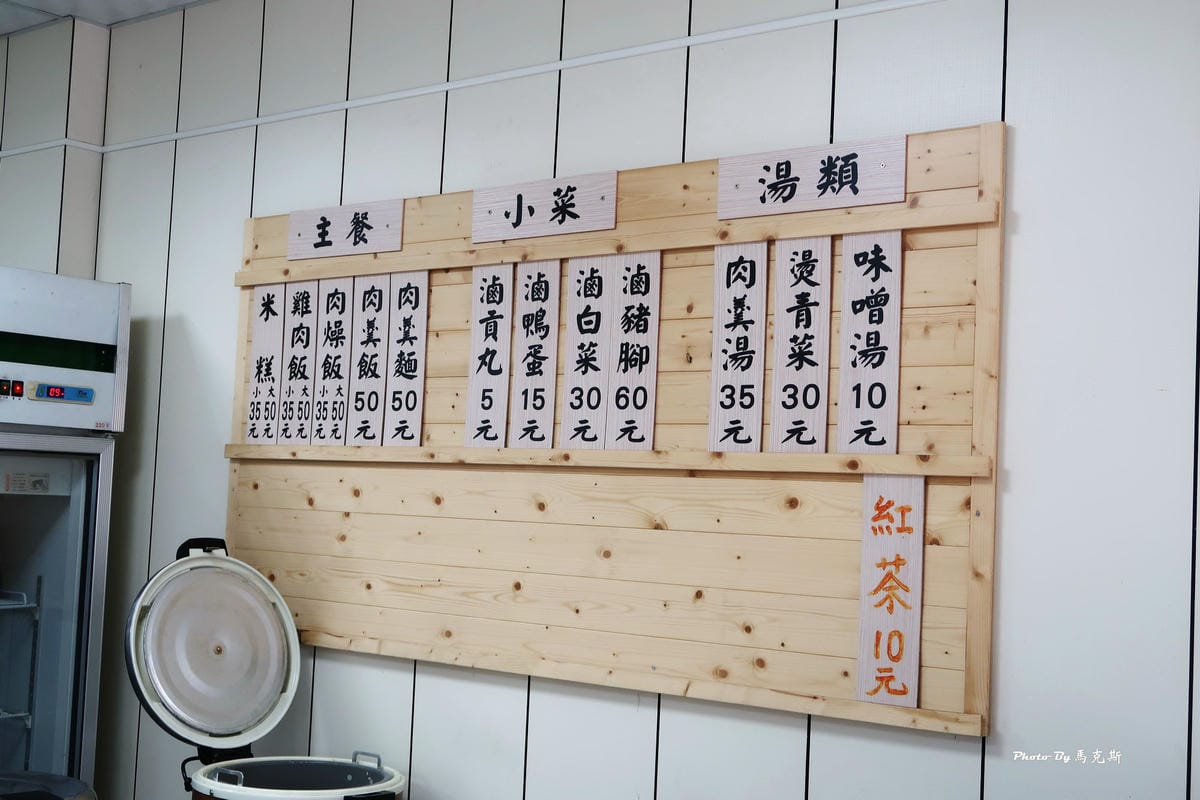 主餐
米糕 小35元 大50元
雞肉飯 小35元 大50元
肉燥飯 小35元 大50元
肉羹飯 50元
肉羹麵 50元
小菜
滷貢丸 5元
滷鴨蛋 15元
滷白菜 30元
滷豬腳 60元
湯類
肉羹湯 35元
燙青菜 30元
味噌湯 10元
紅茶 10元
Photo By 馬克斯